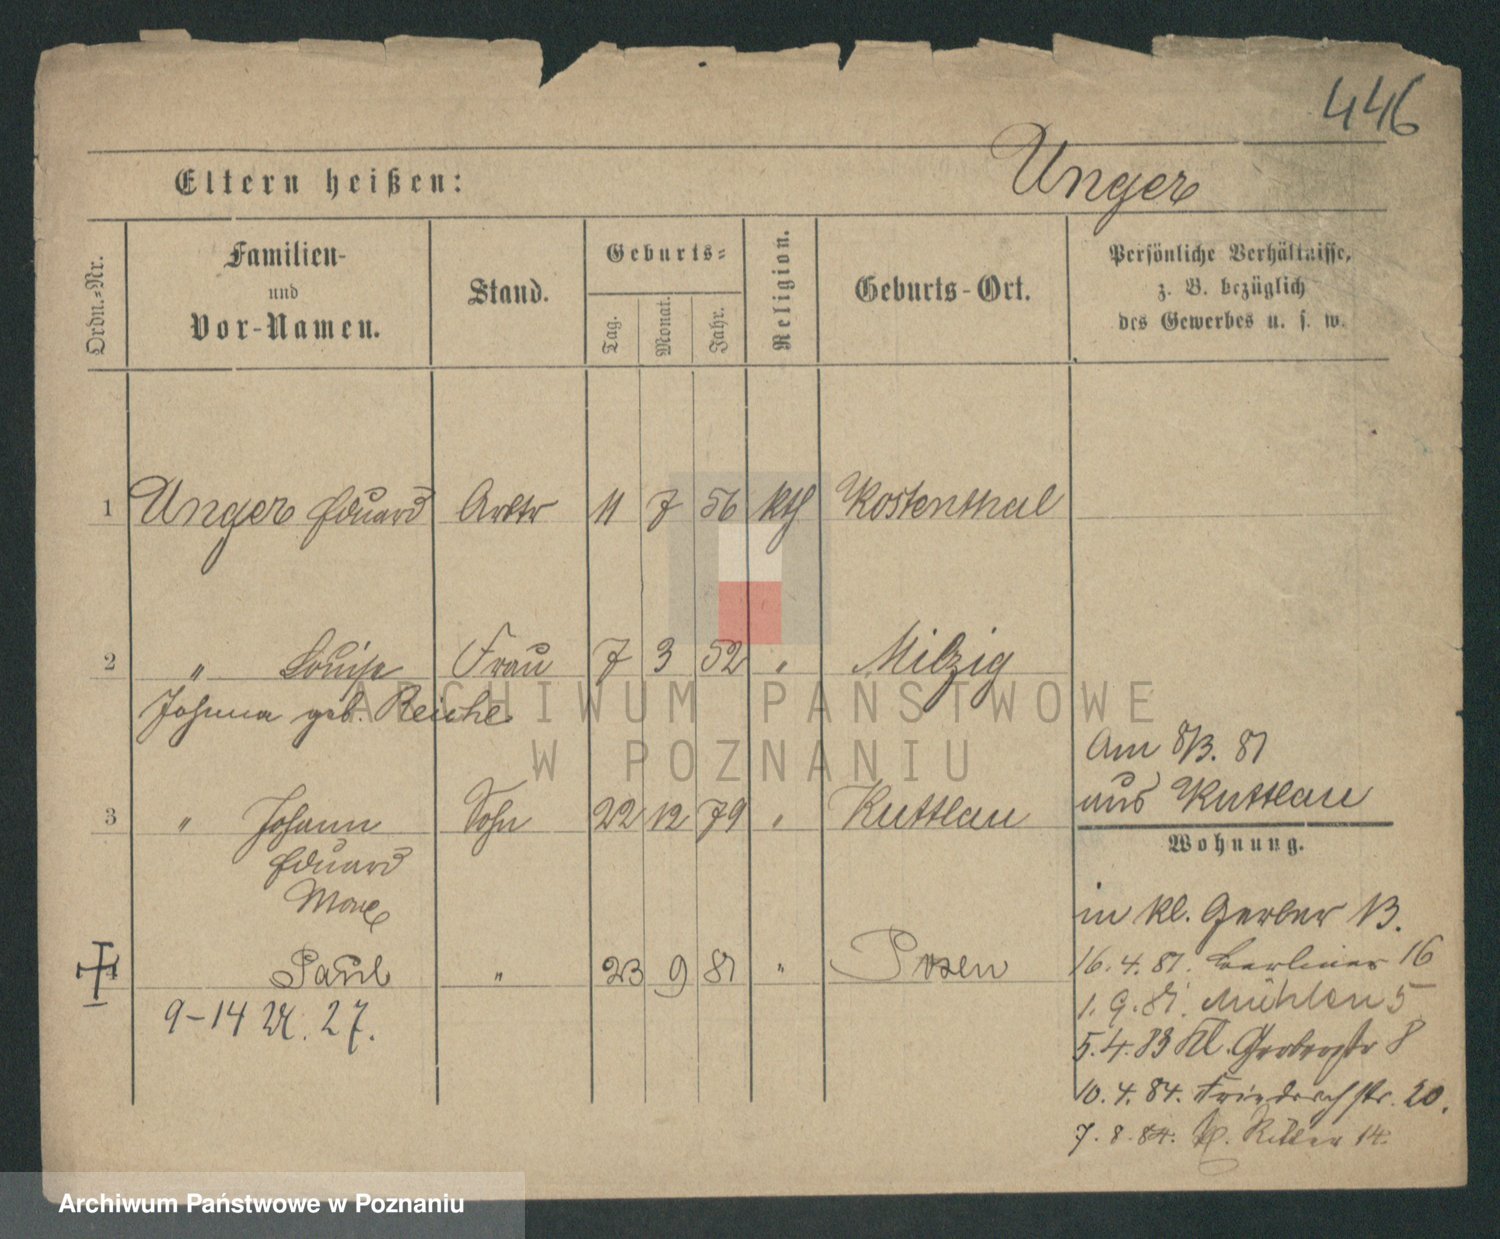 446
Eltern heißen: Unger
Ordn.-Nr.
Familien-
und
Vor-Namen.
Stand.
Geburts-
Tag.
Monat.
Jahr.
Religion.
Geburts-Ort.
Persönliche Verhältnisse,
z. B. bezüglich
des Gewerbes u. s. w.
1 Unger Eduard Arbtr 11 7 56 kth Kostenthal
2 " Louise Frau 7 3 52 " Milzig
Johanna geb. Reiche
Am 8/3. 81
aus Kuttlau
3 " Johann Sohn 22 12 79 " Kuttlau
Eduard
Max
Wohnung.
in kl. Gerber 13.
4 Paul " 23 9 81 " Posen
9-14 27.
16. 4. 81. Berliner 16
1. 9. 81. Mühlen 5
5. 4. 83 Kl. Gerberstr 8
10. 4. 84. Friedrichstr. 20.
7. 8. 84. Kl. Ritter 14.
ARCHIWUM PAŃSTWOWE
W POZNANIU
Archiwum Państwowe w Poznaniu